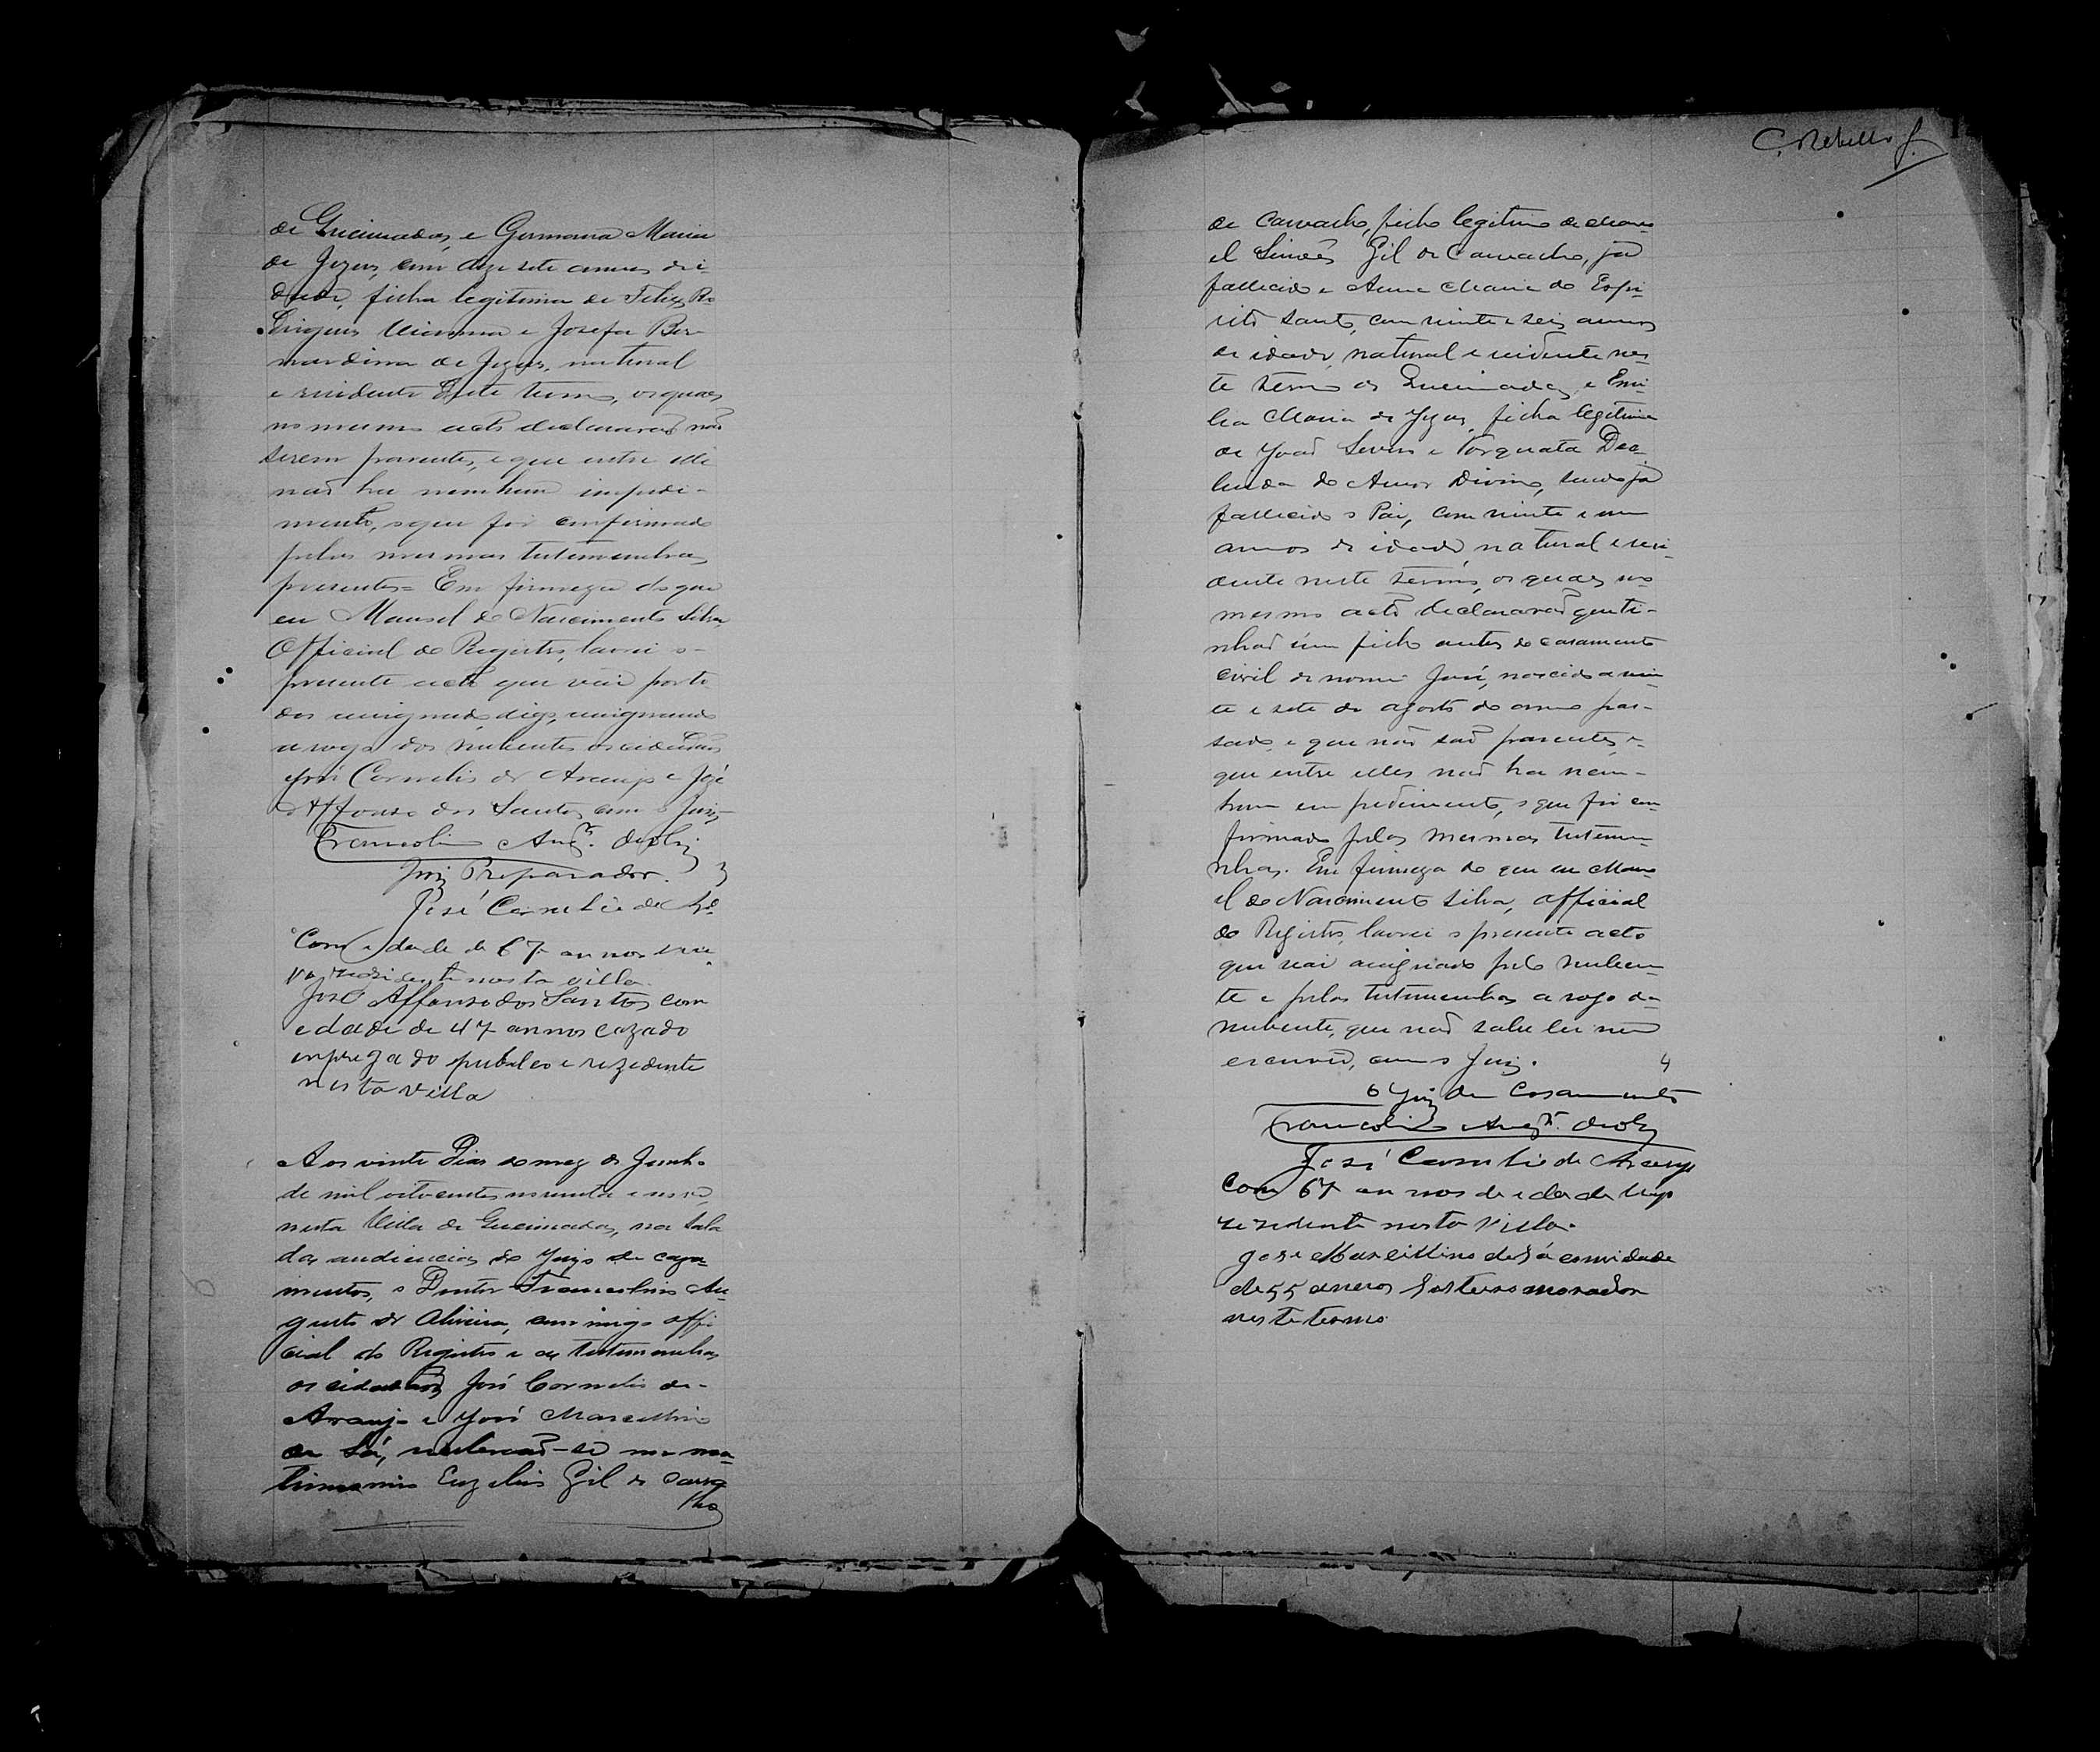 de Queimadas, e Germana Maria
de Jezus, com deze sete annos de i-
dade, filha legitima de Felix Ro
drigues Vianna e Josefa Ber-
nardina de Jezus, natural
e rezidente deste termo, os quaes
no mesmo acto declararaõ naõ
serem parentes, e que entre elle
naõ ha nenhum impedi-
mento, o que foi comfirmado
pelas mesmas testemunhas
presentes = Em firmeza do que
eu Manoel do Nascimento Silva
Official do Registro, lavrei o-
presente acto que vai por to
dos assignado, digo, assignando
a rogo dos nubentes os cidadãos
José Cornelio de Araujo e José
Affonso dos Santos com o Juiz-
Francolino Augto. de Olivª
Juiz Preparador. 3
José Cornelio de Arº
Com idade de 67 annos viu
vo rezidente nesta villa.
José Affonso dos Santos com
edade de 47 annos cazado
impregado publico e rezidente
nesta villa
Aos vinte Dias do mez de Junho
de mil oitocentos noventa e nove,
nesta Villa de Queimadas, na sala
das audiencias do Juizo de caza-
mentos, o Doutor Francolino Au
gusto de Oliveira, commigo offi
cial do Registro e as testemunhas
os cidadãos José Cornelio de-
Araujo e José Marcellino
de Sá, receberaõ-se em ma
trimonio Euzebio Gil de Carva
lho
C. Rebello J.
de Carvalho, filho legitimo de Mano-
el Simões Gil de Carvalho, já
fallecido e Anna Maria do Espi-
rito Santo, com vinte e seis annos
de idade, natural e rezidente nes-
te termo de Queimadas, e Emi-
lia Maria de Jezus, filha legitima
de Joaõ Severo e Torquata Deo-
linda do Amor Divino, sendo já
fallecido o Pai, com vinte e um
annos de idade natural e rezi-
dente neste termo, os quaes no
mesmo acto declararaõ que ti-
nhaõ um filho antes do casamento
civil de nome José, nascido a vin-
te e sete de agosto do anno pas-
sado, e que não saõ parentes, e-
que entre elles naõ ha nen-
hum empedimento, o que foi con
firmado pelas mesmas testemu-
nhas. Em firmeza do que eu Mano
el do Nascimento Silva, official
do Registro, lavrei o presente acto
que vai assignado pelo nuben-
te e pelas testemunhas a rogo da
nubente, que naõ sabe ler nem
escrever, com o Juiz. 4
O Juiz de Casamento
Francolino Augto. de Olivª
José Cornelio de Araujo
Com 67 annos de idade viuvo
rezidente nesta villa.
José Marcellino de Sá com idade
de 55 annos solteiro morador
neste termo